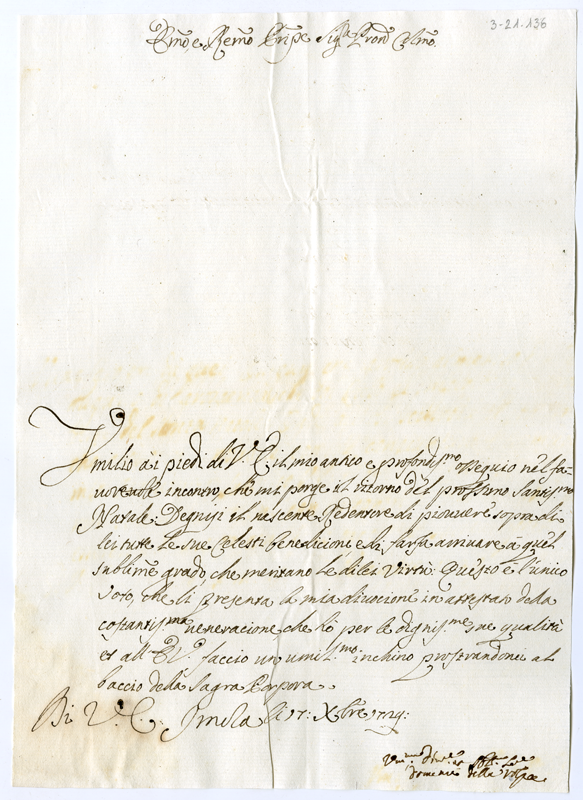 3-21-136
Emõ, e Revmõ Pripe Sigr Pron Colmõ.
Umilio a i piedi di V. E. il mio antico e profondis.mo ossequio nel fa-
uoreuole incontro, che mi porge il ritorno del prossimo Santis.mo
Natale. Degnisi il nascente Redentore di piouere sopra di
lei tutte le sue celesti benedicioni e di farla arriuare a quel
sublime grado, che meritano le di lei Virtù. Questo è l'unico
voto, che li presenta la mia diuocione in attestato della
costantis.ma veneracione che hò per le dignis.me sue qualità
et all' E. V. faccio un umilis.mo inchino prostrandomi al
baccio della Sagra Porpora.
Di V. E. Imola li 17: Xbre
Domenico della Volpe